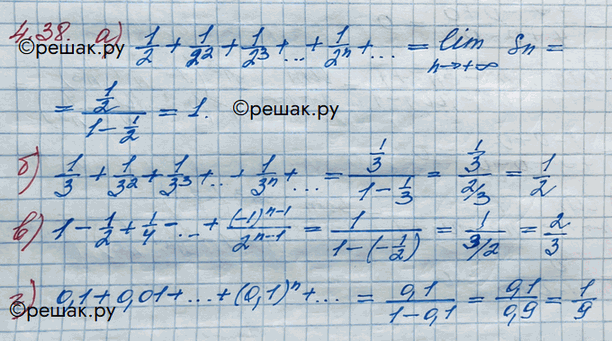 4.38. а) 1/2 + 1/2² + 1/2³ + ... + 1/2ⁿ + ... = lim Sn =
n→+∞
©решак.ру
= (1/2)/(1 - 1/2) = 1. ©решак.ру
б) 1/3 + 1/3² + 1/3³ + ... + 1/3ⁿ + ... = (1/3)/(1 - 1/3) = (1/3)/(2/3) = 1/2
в) 1 - 1/2 + 1/4 - ... + (-1)ⁿ⁻¹/2ⁿ⁻¹ = 1/(1-(-1/2)) = 1/(3/2) = 2/3
г) 0,1 + 0,01 + ... + (0,1)ⁿ + ... = 0,1/(1 - 0,1) = 0,1/0,9 = 1/9
©решак.ру